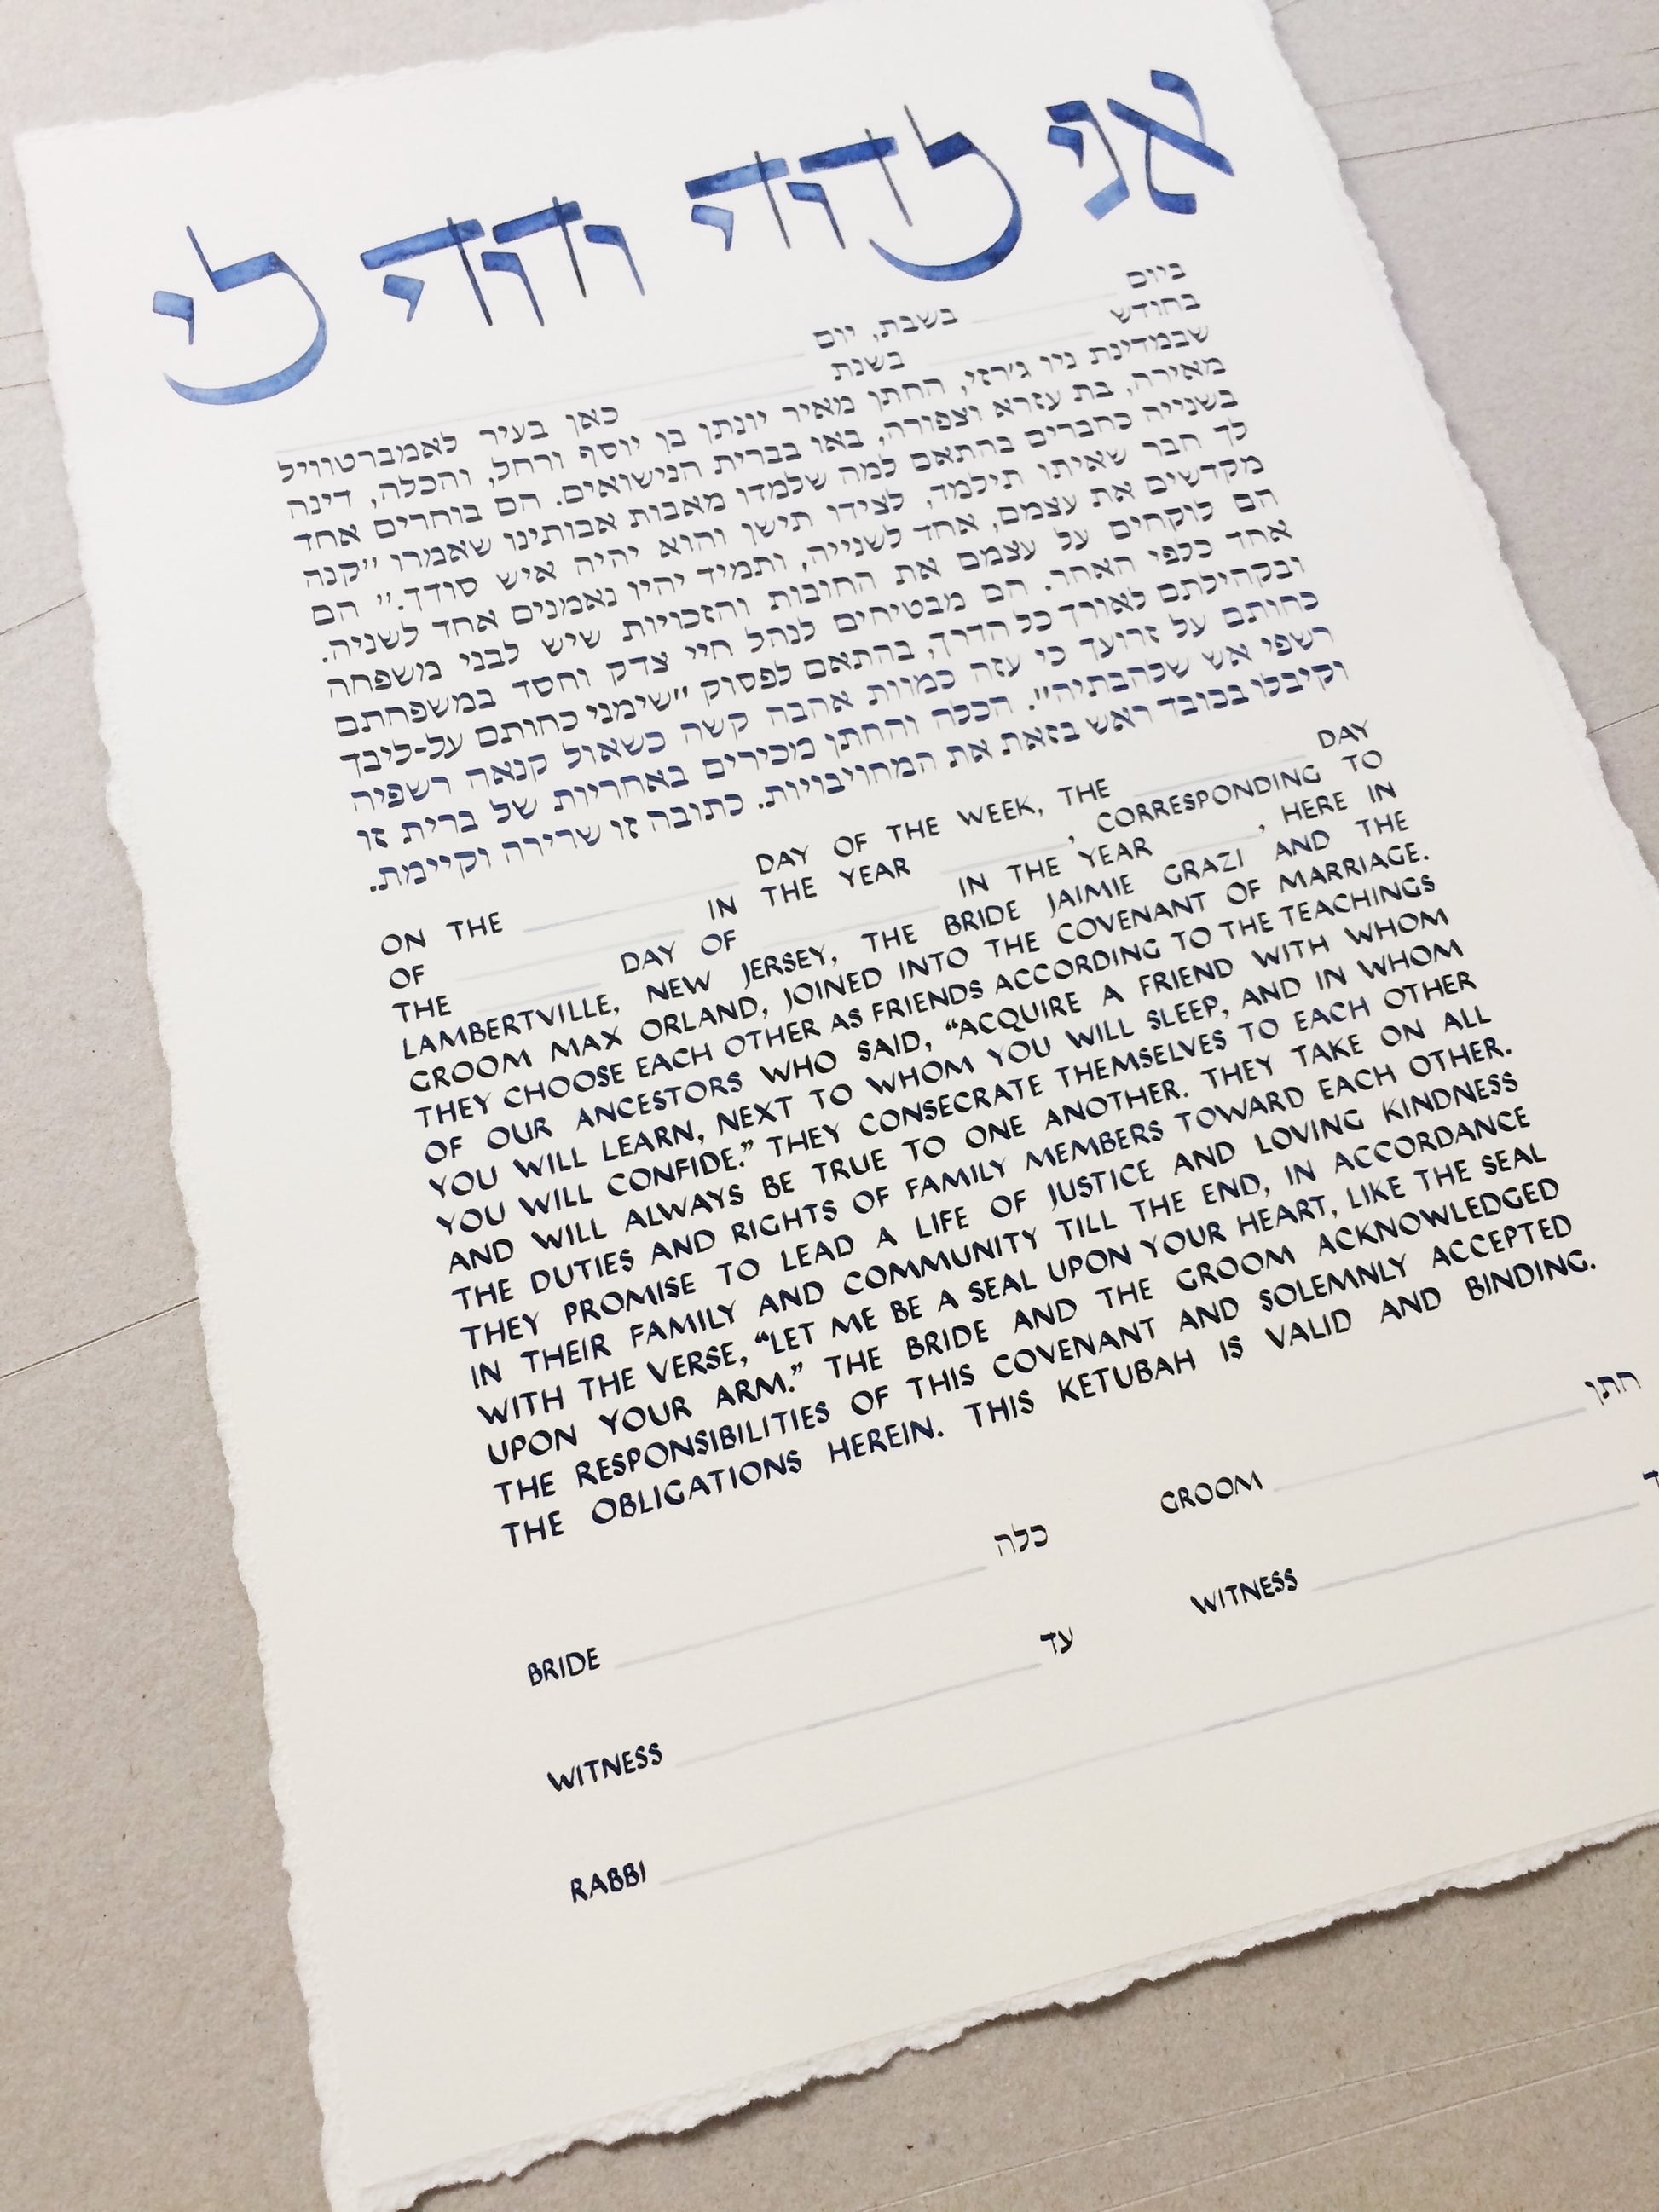 אני לדודי ודודי לי
ביום בשבת, יום
בחודש בשנת כאן בעיר לאמברטוויל
שבמדינת ניו ג׳רזי, החתן מאיר יונתן בן יוסף ורחל, והכלה, דינה
מאירה, בת עזרא וצפורה, באו בברית הנישואים. הם בוחרים אחד
בשנייה כחברים בהתאם למה שלמדו מאבות אבותינו שאמרו ״קנה
לך חבר שאיתו תילמד, לצידו תישן והוא יהיה איש סודך.״ הם
מקדשים את עצמם, אחד לשנייה, ותמיד יהיו נאמנים אחד לשניה.
הם לוקחים על עצמם את החובות והזכויות שיש לבני משפחה
אחד כלפי האחר. הם מבטיחים לנהל חיי צדק וחסד במשפחתם
ובקהילתם לאורך כל הדרך, בהתאם לפסוק ״שימני כחותם על-ליבך
כחותם על זרועך כי עזה כמוות אהבה קשה כשאול קנאה רשפיה
רשפי אש שלהבתיה״. הכלה והחתן מכירים באחריות של ברית זו
וקיבלו בכובד ראש בזאת את המחויבויות. כתובה זו שרירה וקיימת.
ON THE DAY OF THE WEEK, THE DAY
OF IN THE YEAR , CORRESPONDING TO
THE DAY OF IN THE YEAR , HERE IN
LAMBERTVILLE, NEW JERSEY, THE BRIDE JAIMIE GRAZI AND THE
GROOM MAX ORLAND, JOINED INTO THE COVENANT OF MARRIAGE.
THEY CHOOSE EACH OTHER AS FRIENDS ACCORDING TO THE TEACHINGS
OF OUR ANCESTORS WHO SAID, “ACQUIRE A FRIEND WITH WHOM
YOU WILL LEARN, NEXT TO WHOM YOU WILL SLEEP, AND IN WHOM
YOU WILL CONFIDE.” THEY CONSECRATE THEMSELVES TO EACH OTHER
AND WILL ALWAYS BE TRUE TO ONE ANOTHER. THEY TAKE ON ALL
THE DUTIES AND RIGHTS OF FAMILY MEMBERS TOWARD EACH OTHER.
THEY PROMISE TO LEAD A LIFE OF JUSTICE AND LOVING KINDNESS
IN THEIR FAMILY AND COMMUNITY TILL THE END, IN ACCORDANCE
WITH THE VERSE, “LET ME BE A SEAL UPON YOUR HEART, LIKE THE SEAL
UPON YOUR ARM.” THE BRIDE AND THE GROOM ACKNOWLEDGED
THE RESPONSIBILITIES OF THIS COVENANT AND SOLEMNLY ACCEPTED
THE OBLIGATIONS HEREIN. THIS KETUBAH IS VALID AND BINDING.
BRIDE כלה GROOM חתן
WITNESS עד WITNESS
RABBI